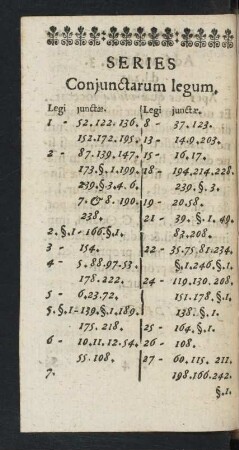 SERIES
Conjunctarum legum.
Legi junctæ.
1 - 52.122.136.
152.172.195.
2 - 87.139.147.
173.§.1.199.
239.§.3.4.6.
7. & 8. 190.
238.
2.§.1-166.§.1.
3 - 154.
4 - 5.88.97.53.
178.222.
5 - 6.23.72.
5.§.1-139.§.1.189.
175.218.
6 - 10.11.12.54.
55.108.
7.
Legi junctæ.
8 - 37.123.
13 - 14.9.203.
15 - 16.17.
18 - 194.214.228.
239.§.3.
19 - 20.58.
21 - 39. §.1.49.
83.208.
22 - 35.75.81.234.
§.1.246.§.1.
24 - 119.130.208.
151.178.§.1.
138.§.1.
25 - 164.§.1.
26 - 108.
27 - 60.115.211.
198.166.242.
§.1.